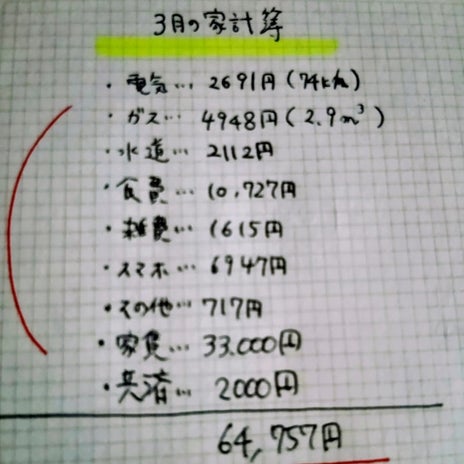 3月の家計簿
・電気… 2691円(74kh)
・ガス… 4948円(2.9m³)
・水道… 2112円
・食費… 10,727円
・雑費… 1615円
・スマホ… 6947円
・その他… 717円
・家賃… 33.000円
・共済… 2000円
64,757円